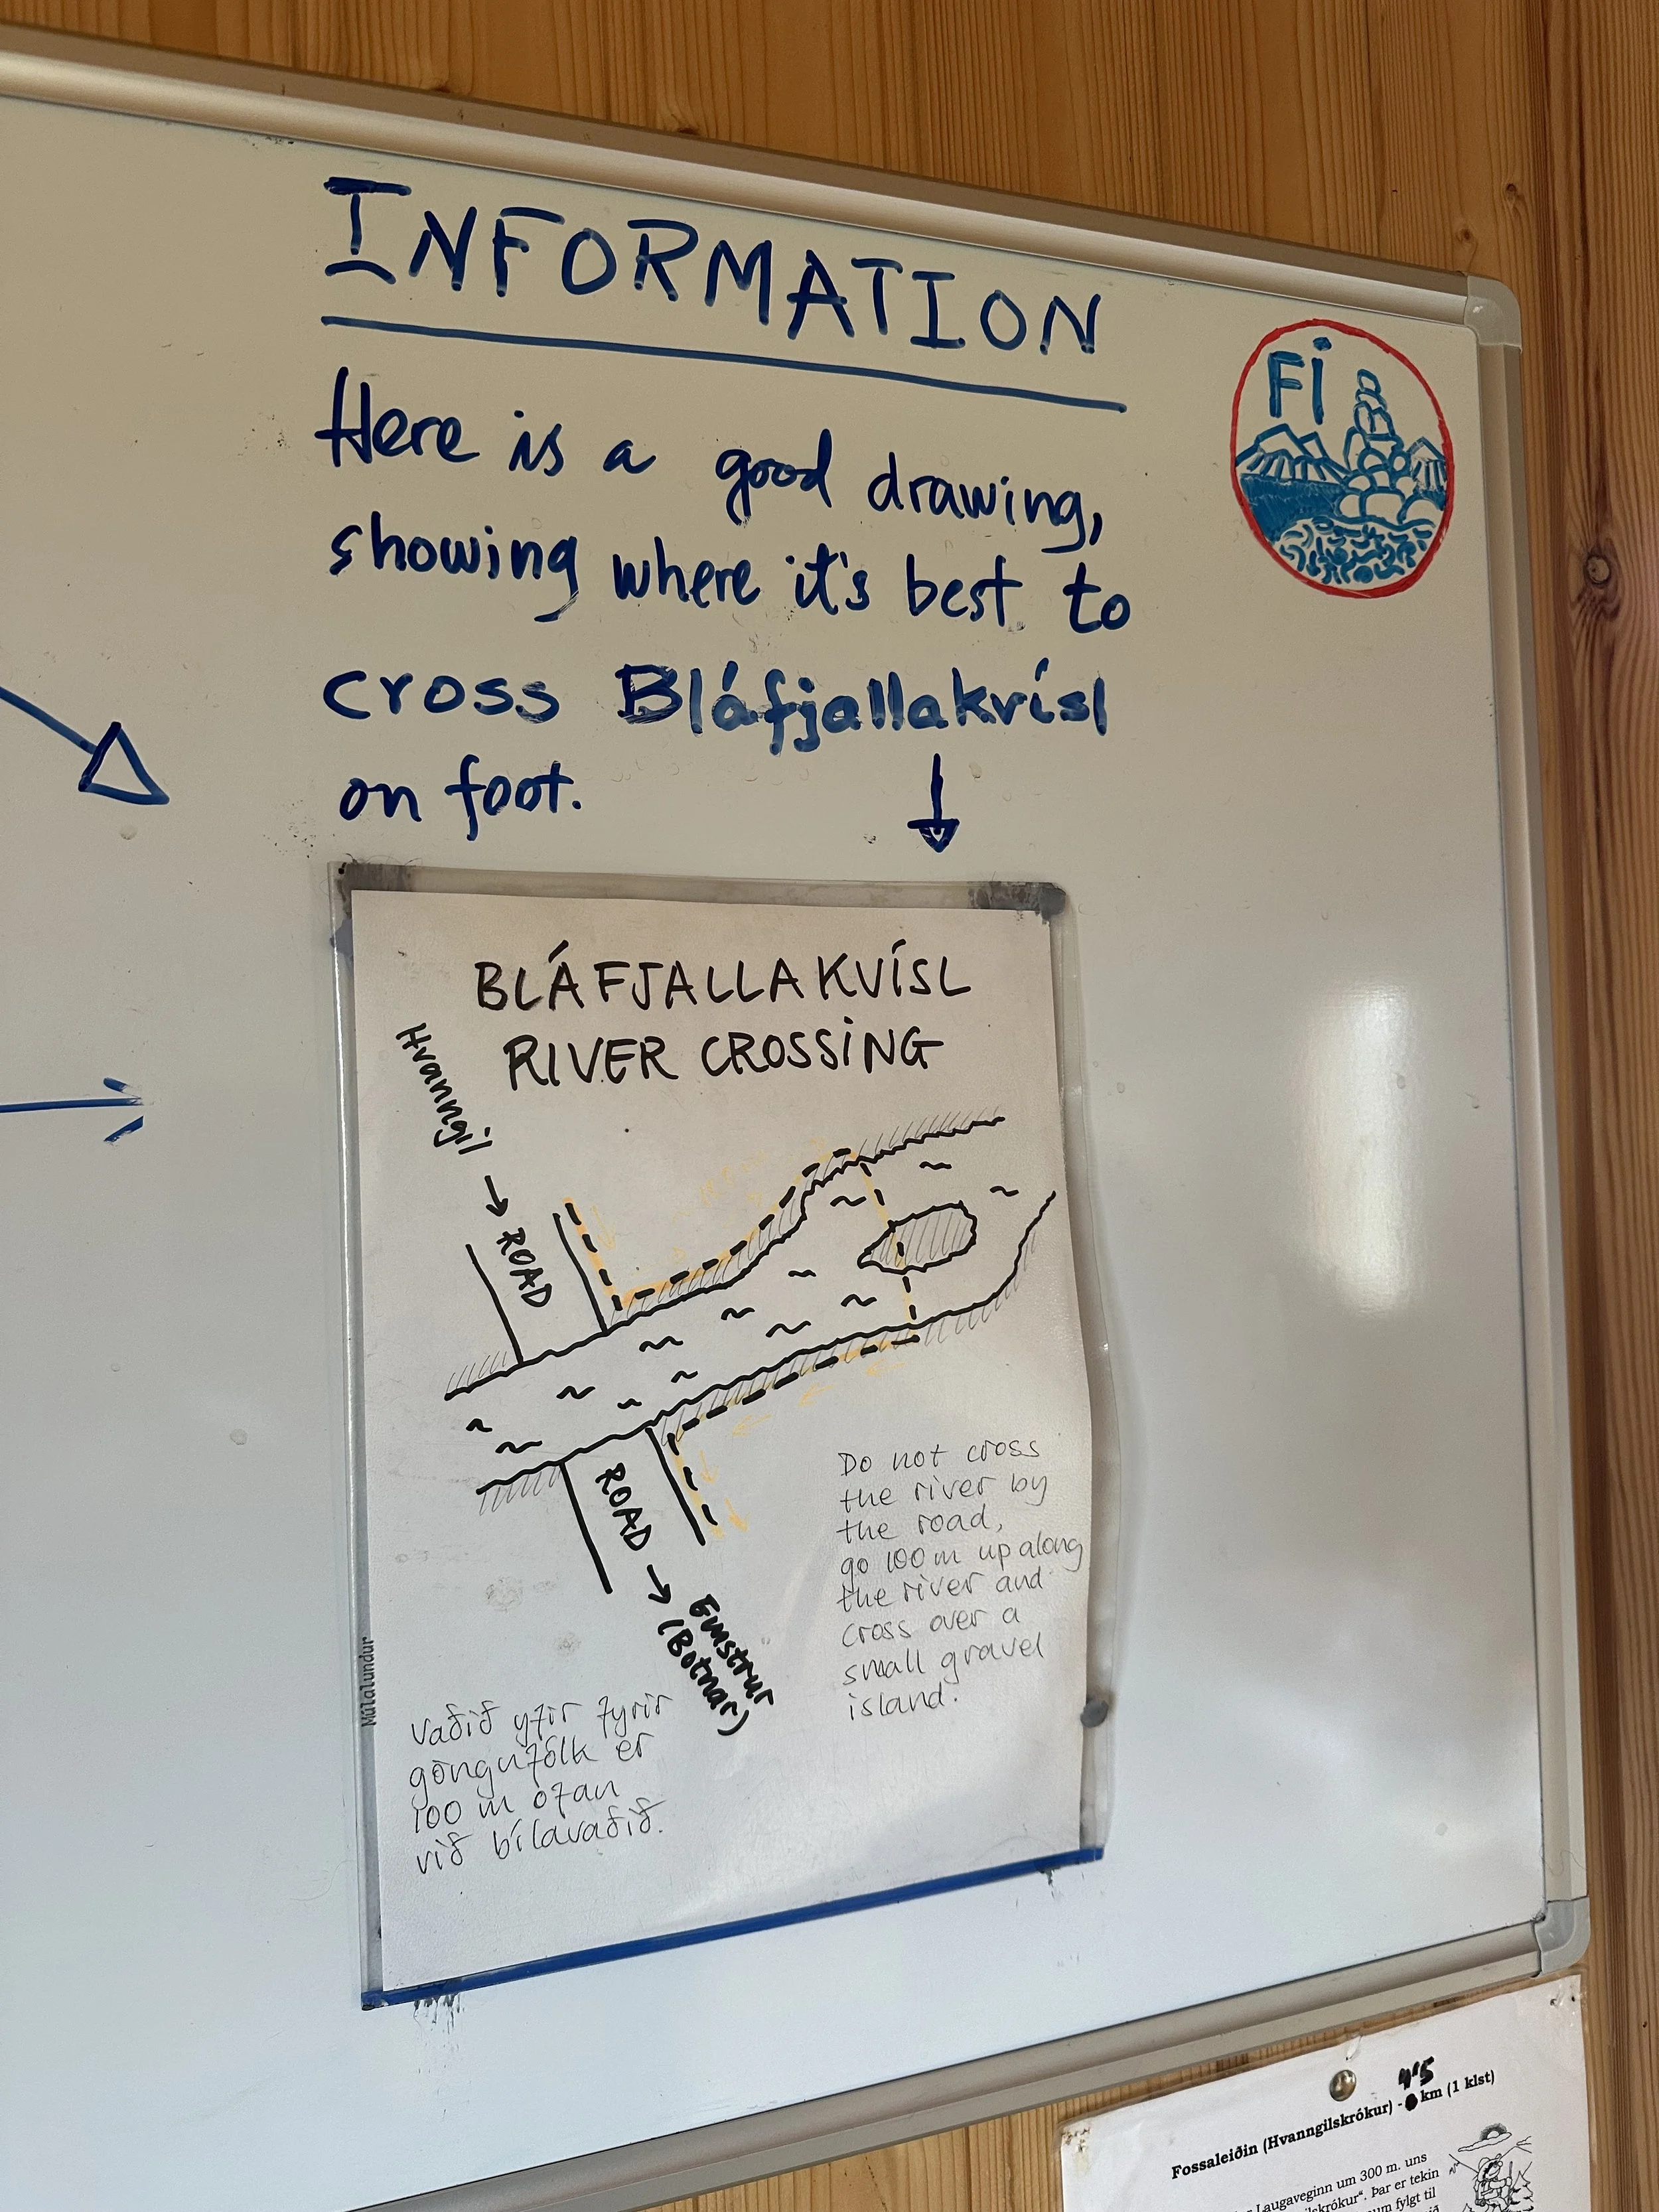 INFORMATION
Here is a good drawing,
showing where it's best to
cross Bláfjallakvísl
on foot.
Fi
BLÁFJALLAKVÍSL
RIVER CROSSING
Hvanngil
ROAD
ROAD
Emstrur
(Botnar)
Do not cross
the river by
the road,
go 100 m up along
the river and
cross over a
small gravel
island.
Vaðið yfir fyrir
göngufólk er
100 m ofan
við bílavaðið.
Múlalundur
4'5
Fossaleiðin (Hvanngilskrókur) - km (1 klst)
Laugaveginn um 300 m. uns
skrókur“. Þar er tekin
um fylgt til